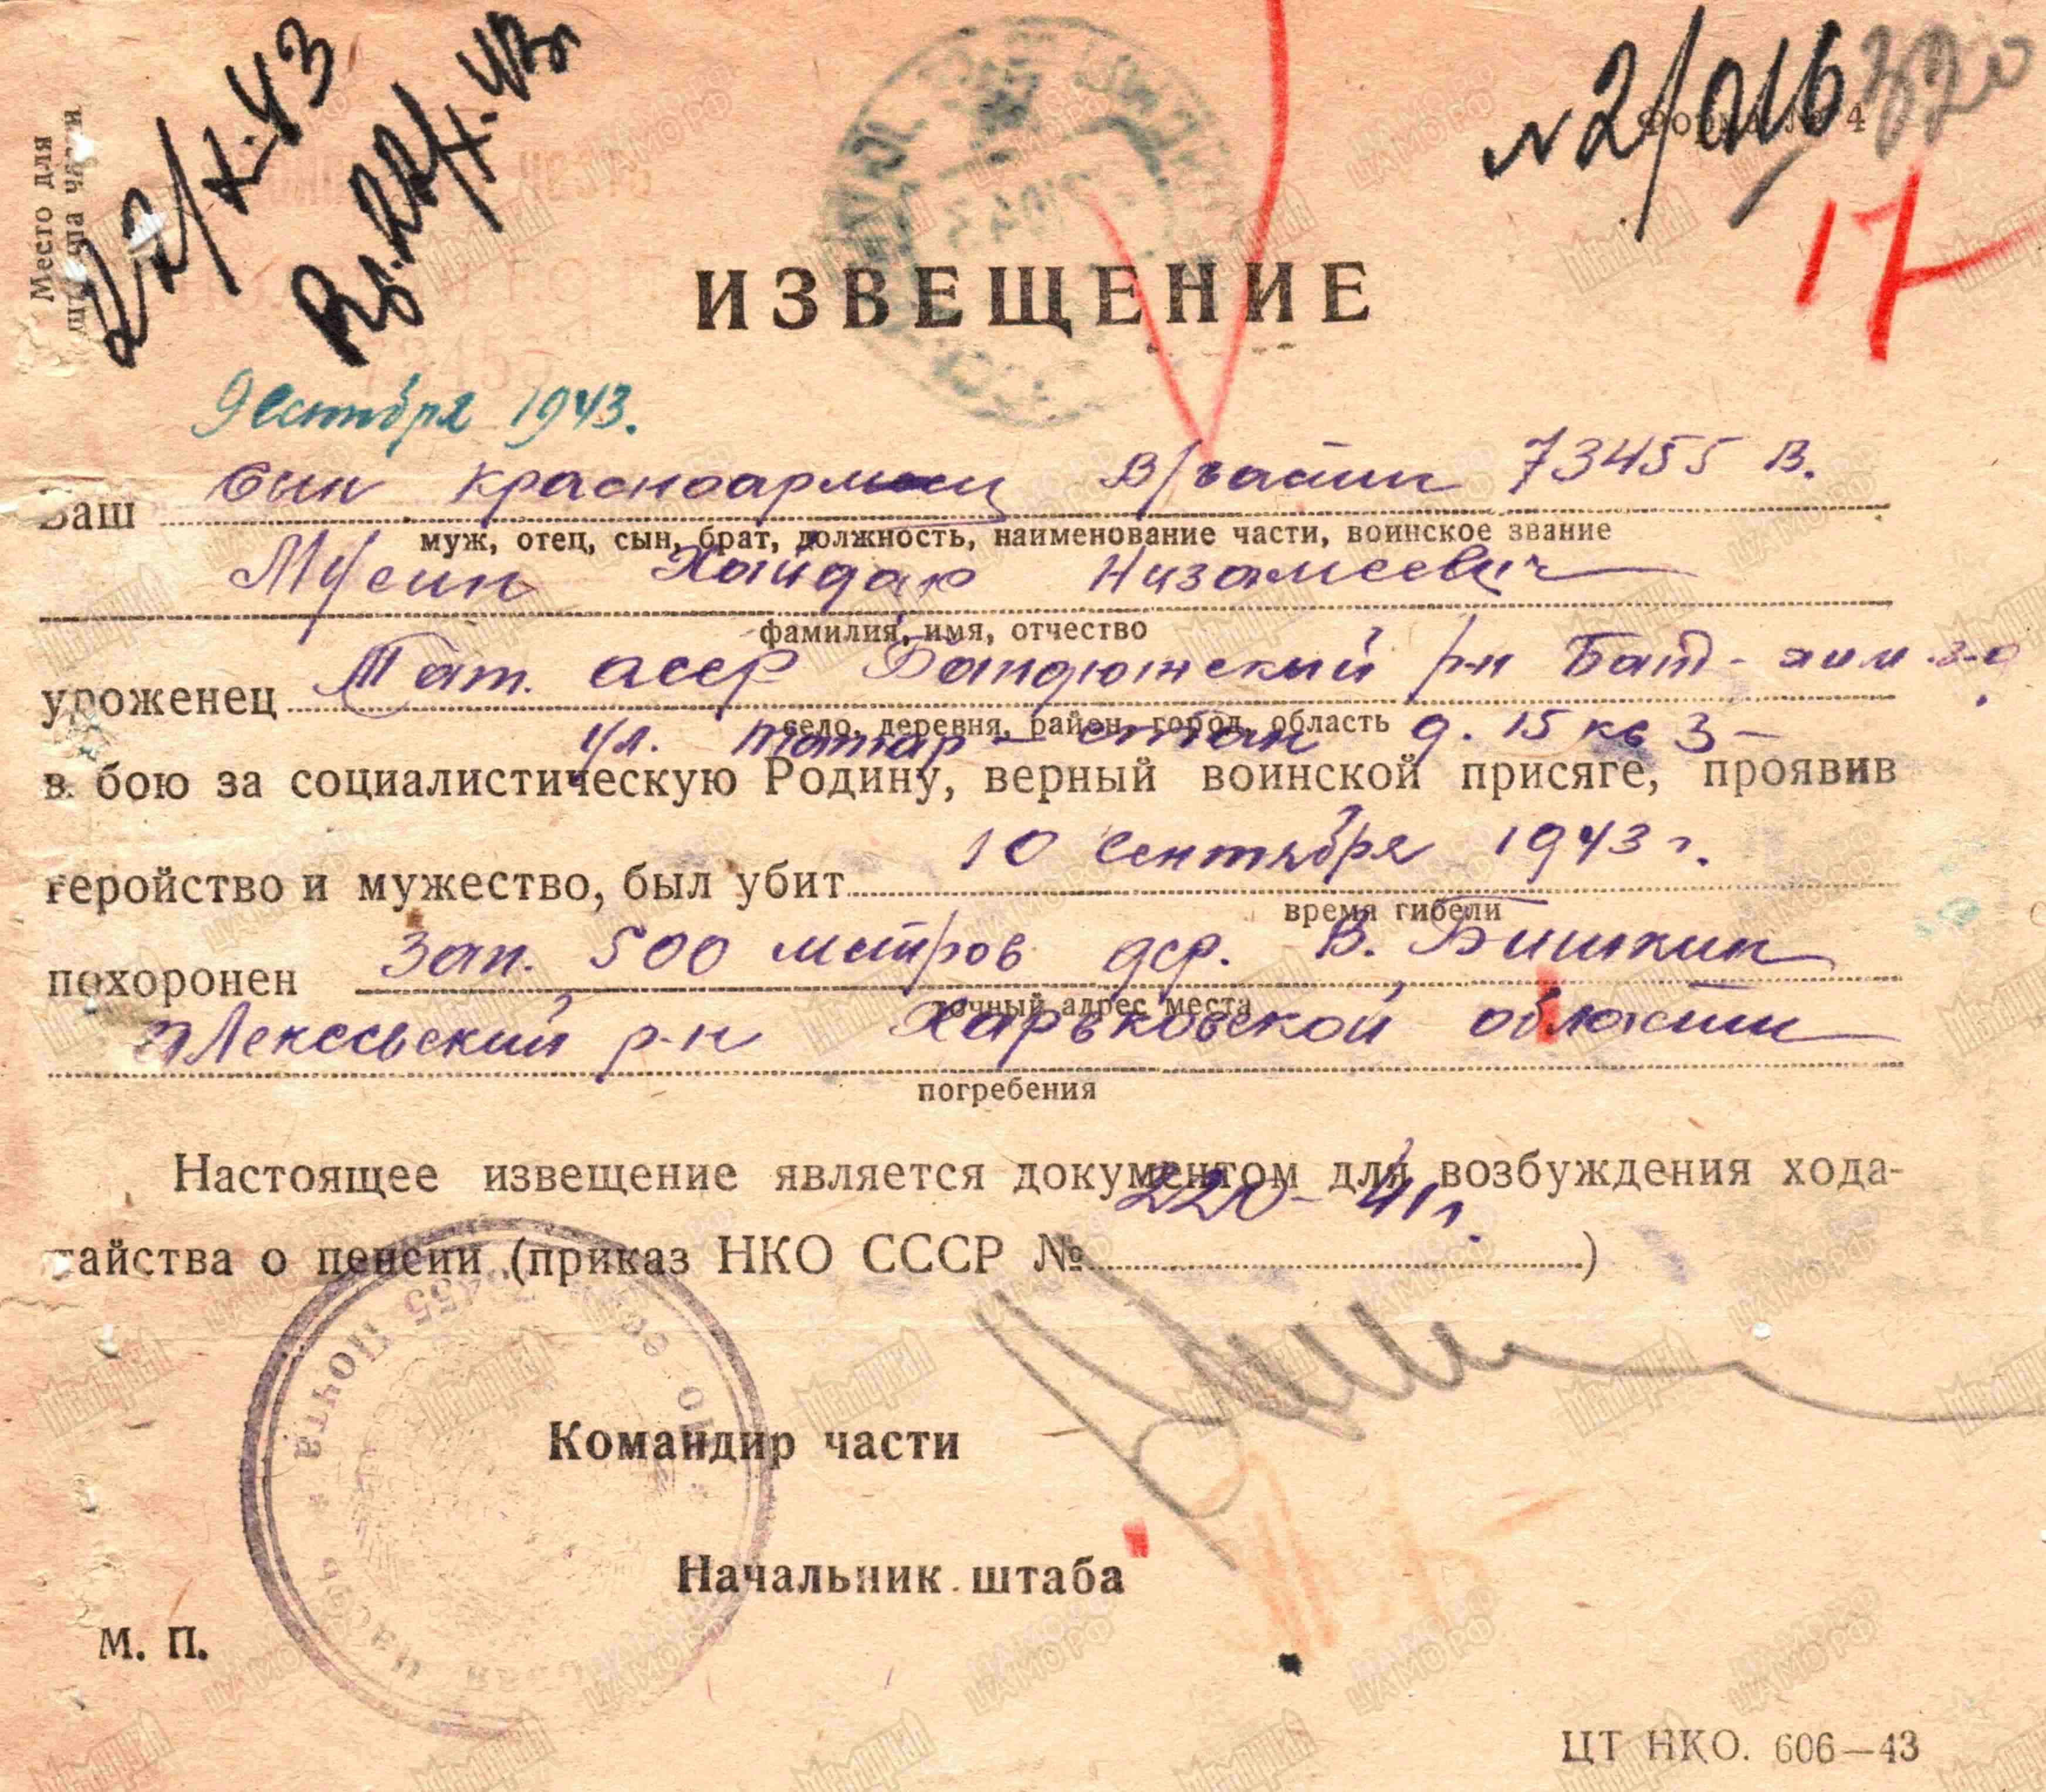 Место для
штампа части
22/X.43
Вх.22/X.43г.
№2/016
320
Форма № 4
17
ИЗВЕЩЕНИЕ
9 октября 1943.
Ваш сын красноармеец В/части 73455 В.
муж, отец, сын, брат, должность, наименование части, воинское звание
Мусин Хайдар Низамеевич
фамилия, имя, отчество
уроженец Тат. асср р-н
село, деревня, район, город, область
ул. д. 15 кв 3
в бою за социалистическую Родину, верный воинской присяге, проявив
геройство и мужество, был убит 10 Сентября 1943 г.
время гибели
похоронен Зап. 500 метров дер. В. Бишкин
точный адрес места
р-н Харьковской области
погребения
Настоящее извещение является документом для возбуждения хода-
тайства о пенсии (приказ НКО СССР № 220-41г. )
Почта
455
Командир части
Начальник штаба
М. П.
ЦТ НКО. 606—43